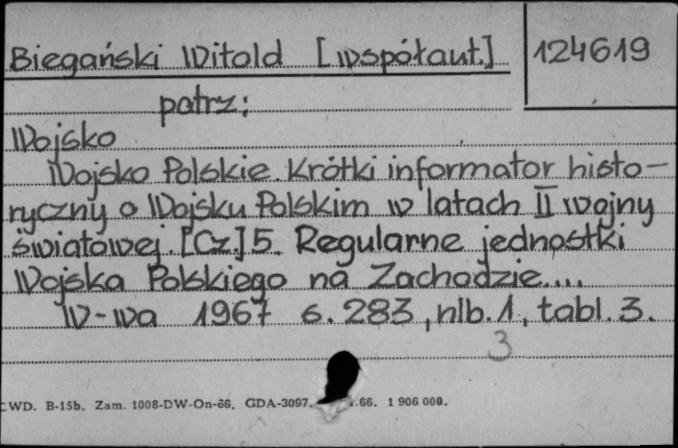 Biegański Witold [współaut.]
124619
patrz:
Wojsko
Wojsko Polskie. Krótki informator histo-
ryczny o Wojsku Polskim w latach II wojny
światowej. [Cz.] 5. Regularne jednostki
Wojska Polskiego na Zachodzie....
W-wa 1967 s. 283, nlb. 1, tabl. 3.
3
CWD. B-15b. Zam. 1008-DW-On-66. GDA-3097. .66. 1 906 000.